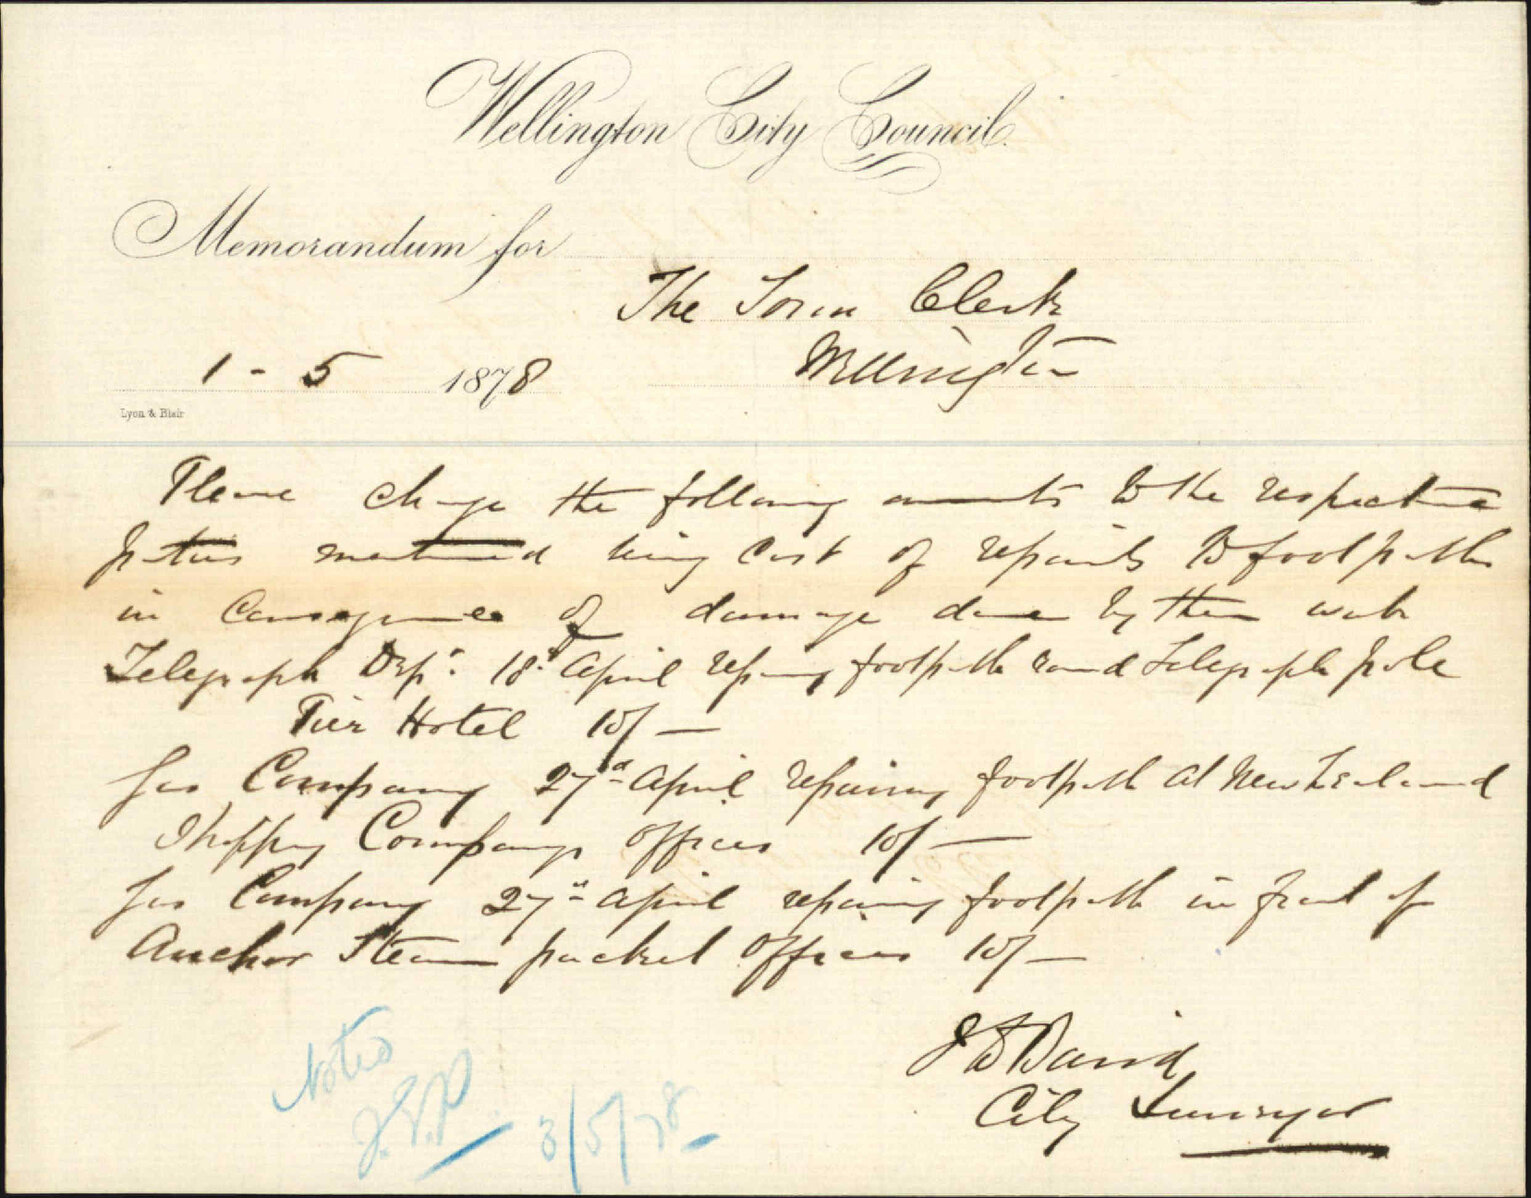 Wellington City Council.
Memorandum for
The Town Clerk
Wellington
1 - 5 1878
Lyon & Blair
Please charge the following amounts to the respective
parties mentioned being cost of repairs to footpaths
in consequence of damage done by their works
Telegraph Dept. 18th April repairing footpath round Telegraph pole
Pier Hotel 10/-
Gas Company 27th April repairing footpath at New Zealand
Shipping Companys offices 10/-
Gas Company 27th April repairing footpath in front of
Anchor Steam packet offices 10/-
J D Baird
City Surveyor
Noted
3/5/78